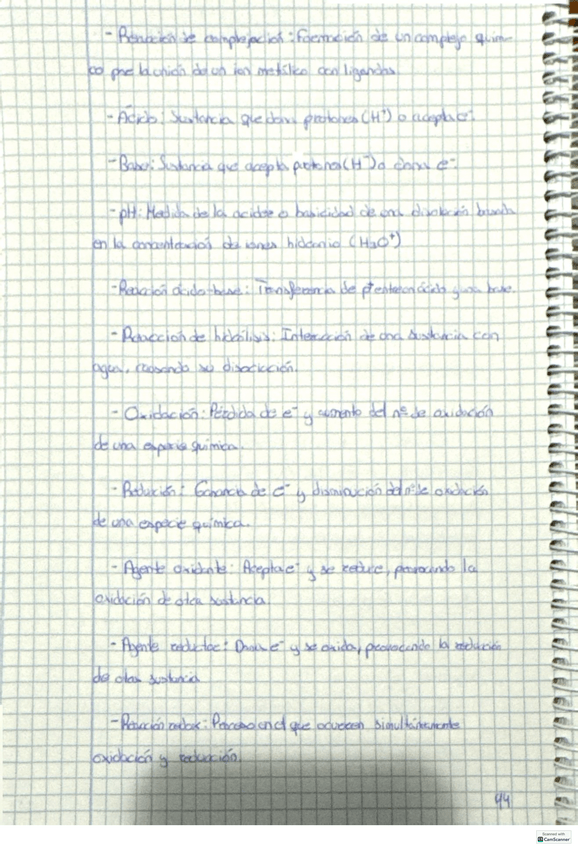 - Reacción de complejación: Formación de un complejo quími-
co por la unión de un ion metálico con ligandos.
- Ácido: Sustancia que dona protones (H⁺) o acepta e⁻.
- Base: Sustancia que acepta protones (H⁺) o dona e⁻.
- pH: Medida de la acidez o basicidad de una disolución basada
en la concentración de iones hidronio (H₃O⁺)
- Reacción ácido-base: Transferencia de p⁺ entre un ácido y una base.
- Reacción de hidrólisis: Interacción de una sustancia con
agua, causando su disociación.
- Oxidación: Pérdida de e⁻ y aumento del nº de oxidación
de una especie química.
- Reducción: Ganancia de e⁻ y disminución del nº de oxidación
de una especie química.
- Agente oxidante: Acepta e⁻ y se reduce, provocando la
oxidación de otra sustancia.
- Agente reductor: Dona e⁻ y se oxida, provocando la reducción
de otra sustancia
- Reacción redox: Proceso en el que ocurren simultáneamente
oxidación y reducción.
44
Scanned with
CamScanner